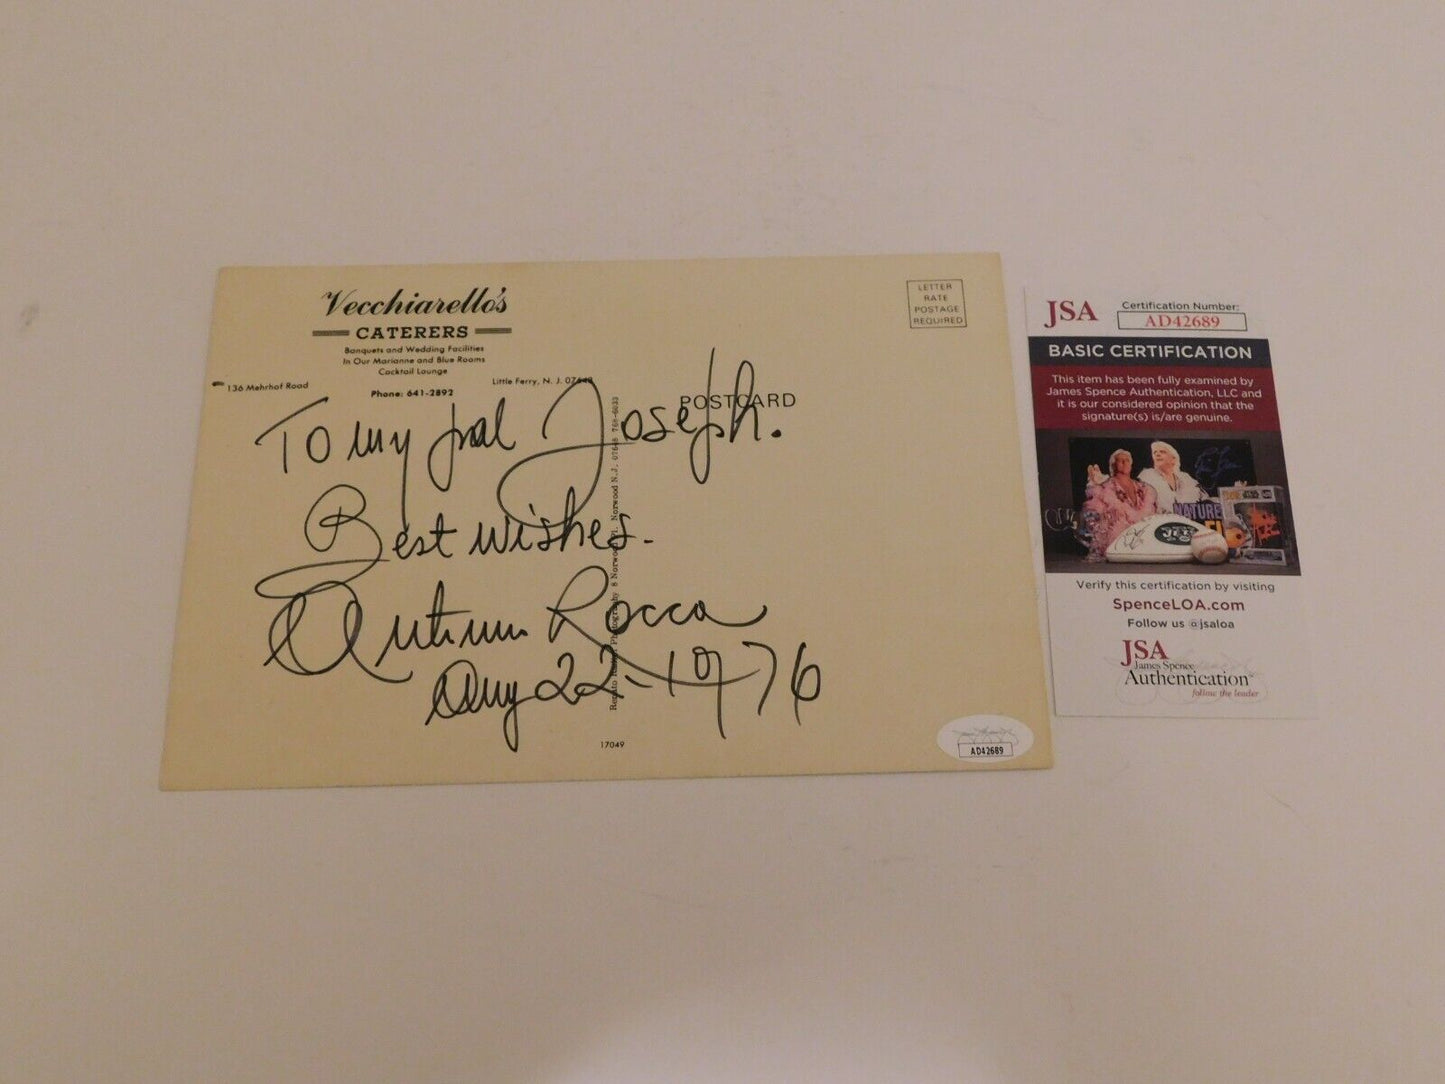 Vecchiarello's
CATERERS
Banquets and Wedding Facilities
In Our Marianne and Blue Rooms
Cocktail Lounge
136 Mehrhof Road
Little Ferry, N. J. 07643
Phone: 641-2892
LETTER
RATE
POSTAGE
REQUIRED
POSTCARD
To my pal Joseph.
Best wishes.
Antonino Rocca
Aug 22-1976
Photography 8 Norwood Norwood N.J. 07648 768-6033
17049
AD42689
JSA
Certification Number:
AD42689
BASIC CERTIFICATION
This item has been fully examined by
James Spence Authentication, LLC and
it is our considered opinion that the
signature(s) is/are genuine.
NATURE
JETS
Verify this certification by visiting
SpenceLOA.com
Follow us @jsaloa
JSA
James Spence
Authentication
follow the leader